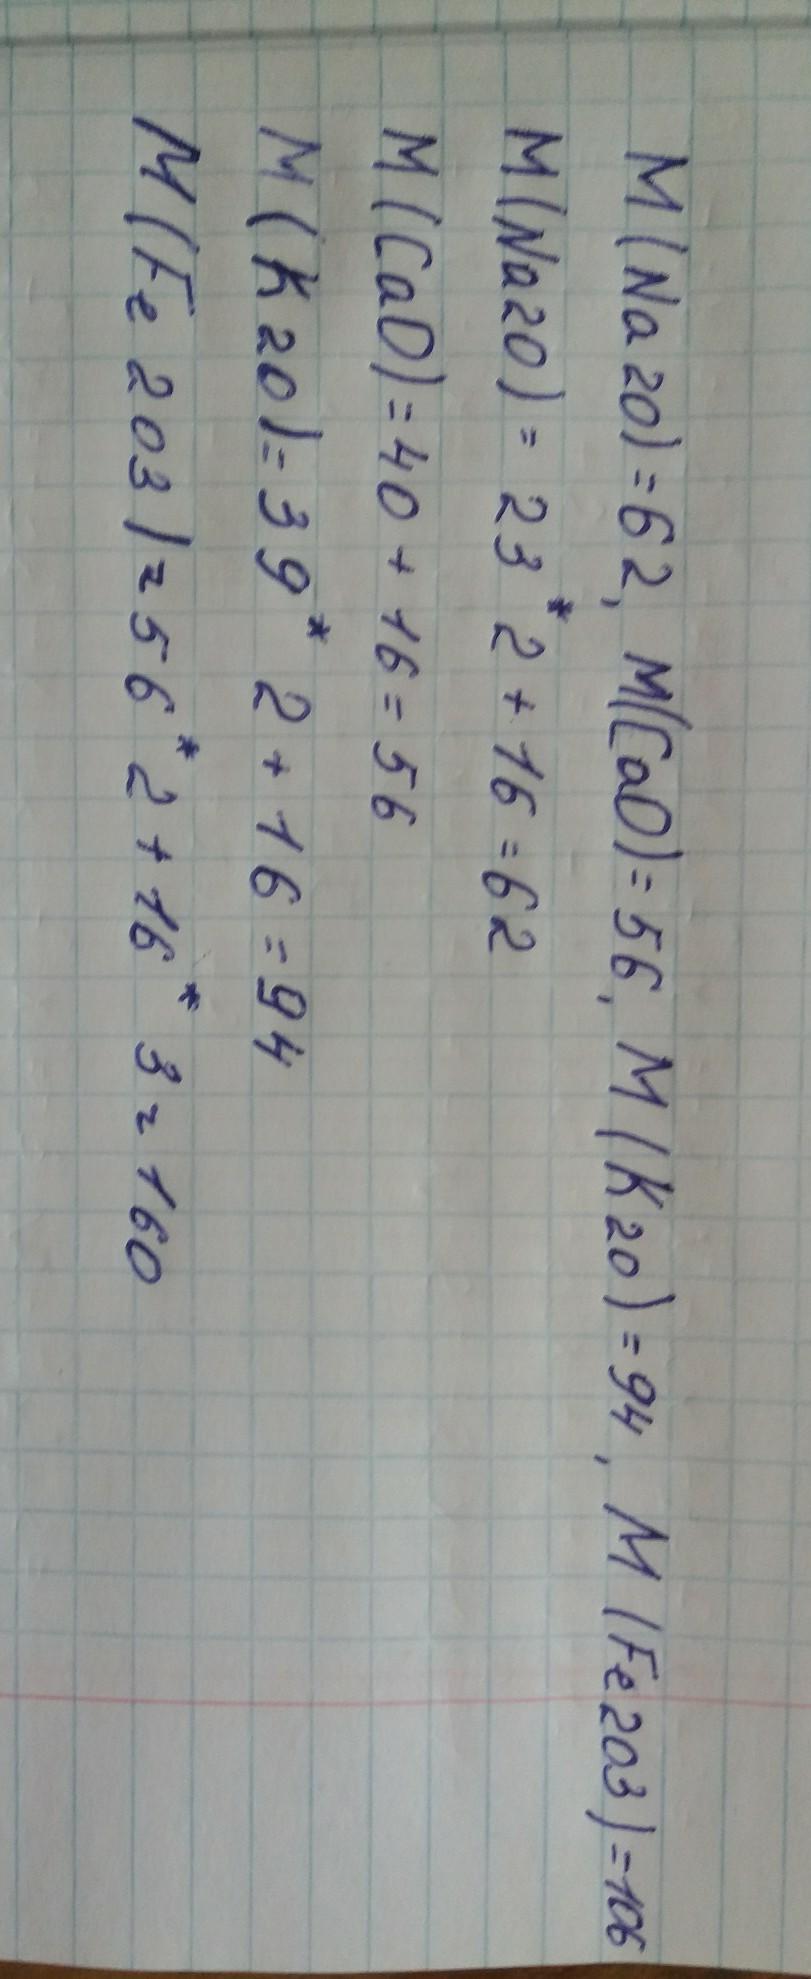 M(Na2O)=62, M(CaO)=56, M(K2O)=94, M(Fe2O3)=106
M(Na2O)=23*2+16=62
M(CaO)=40+16=56
M(K2O)=39*2+16=94
M(Fe2O3)=56*2+16*3=160